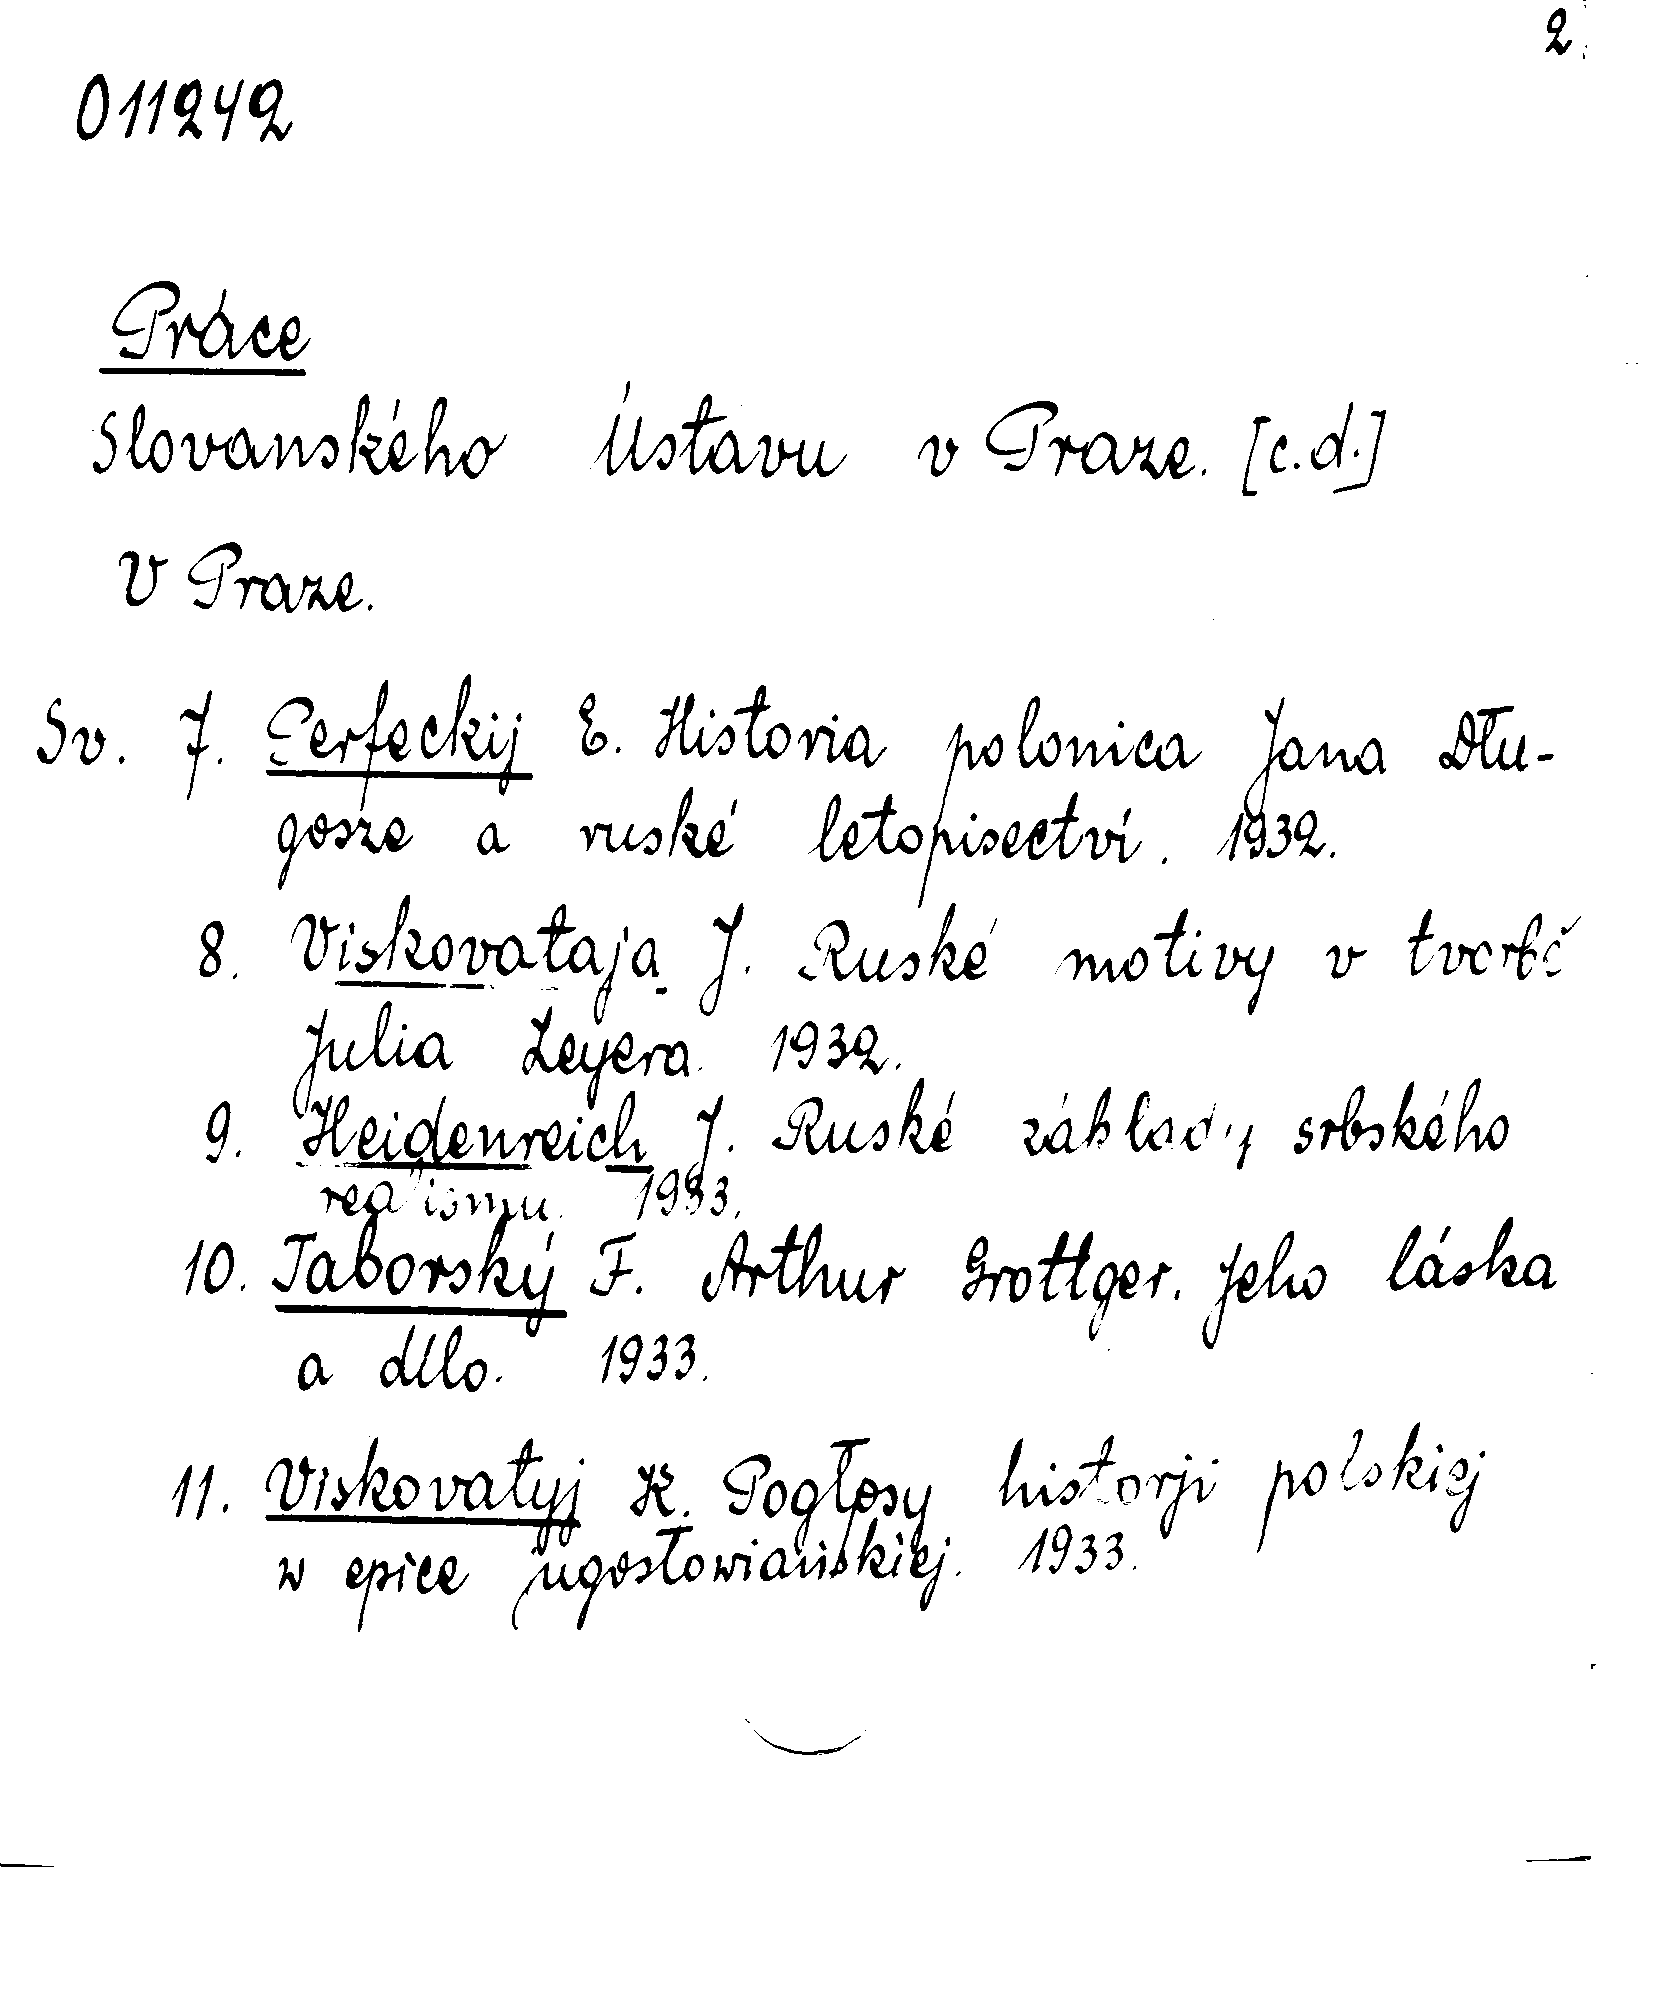 2.
011242
Práce
Slovanského Ústavu v Praze. [c.d.]
V Praze.
Sv. 7. Perfeckij E. Historia polonica Jana Dłu-
gosze a ruské letopisectví. 1932.
8. Viskovataja J. Ruské motivy v tvorbě
Julia Zeyera. 1932.
9. Heidenreich J. Ruské základy srbského
realismu. 1933.
10. Taborský F. Arthur Grottger. Jeho láska
a dílo. 1933.
11. Viskovatyj K. Pogłosy historji polskiej
w epice jugosłowiańskiej. 1933.